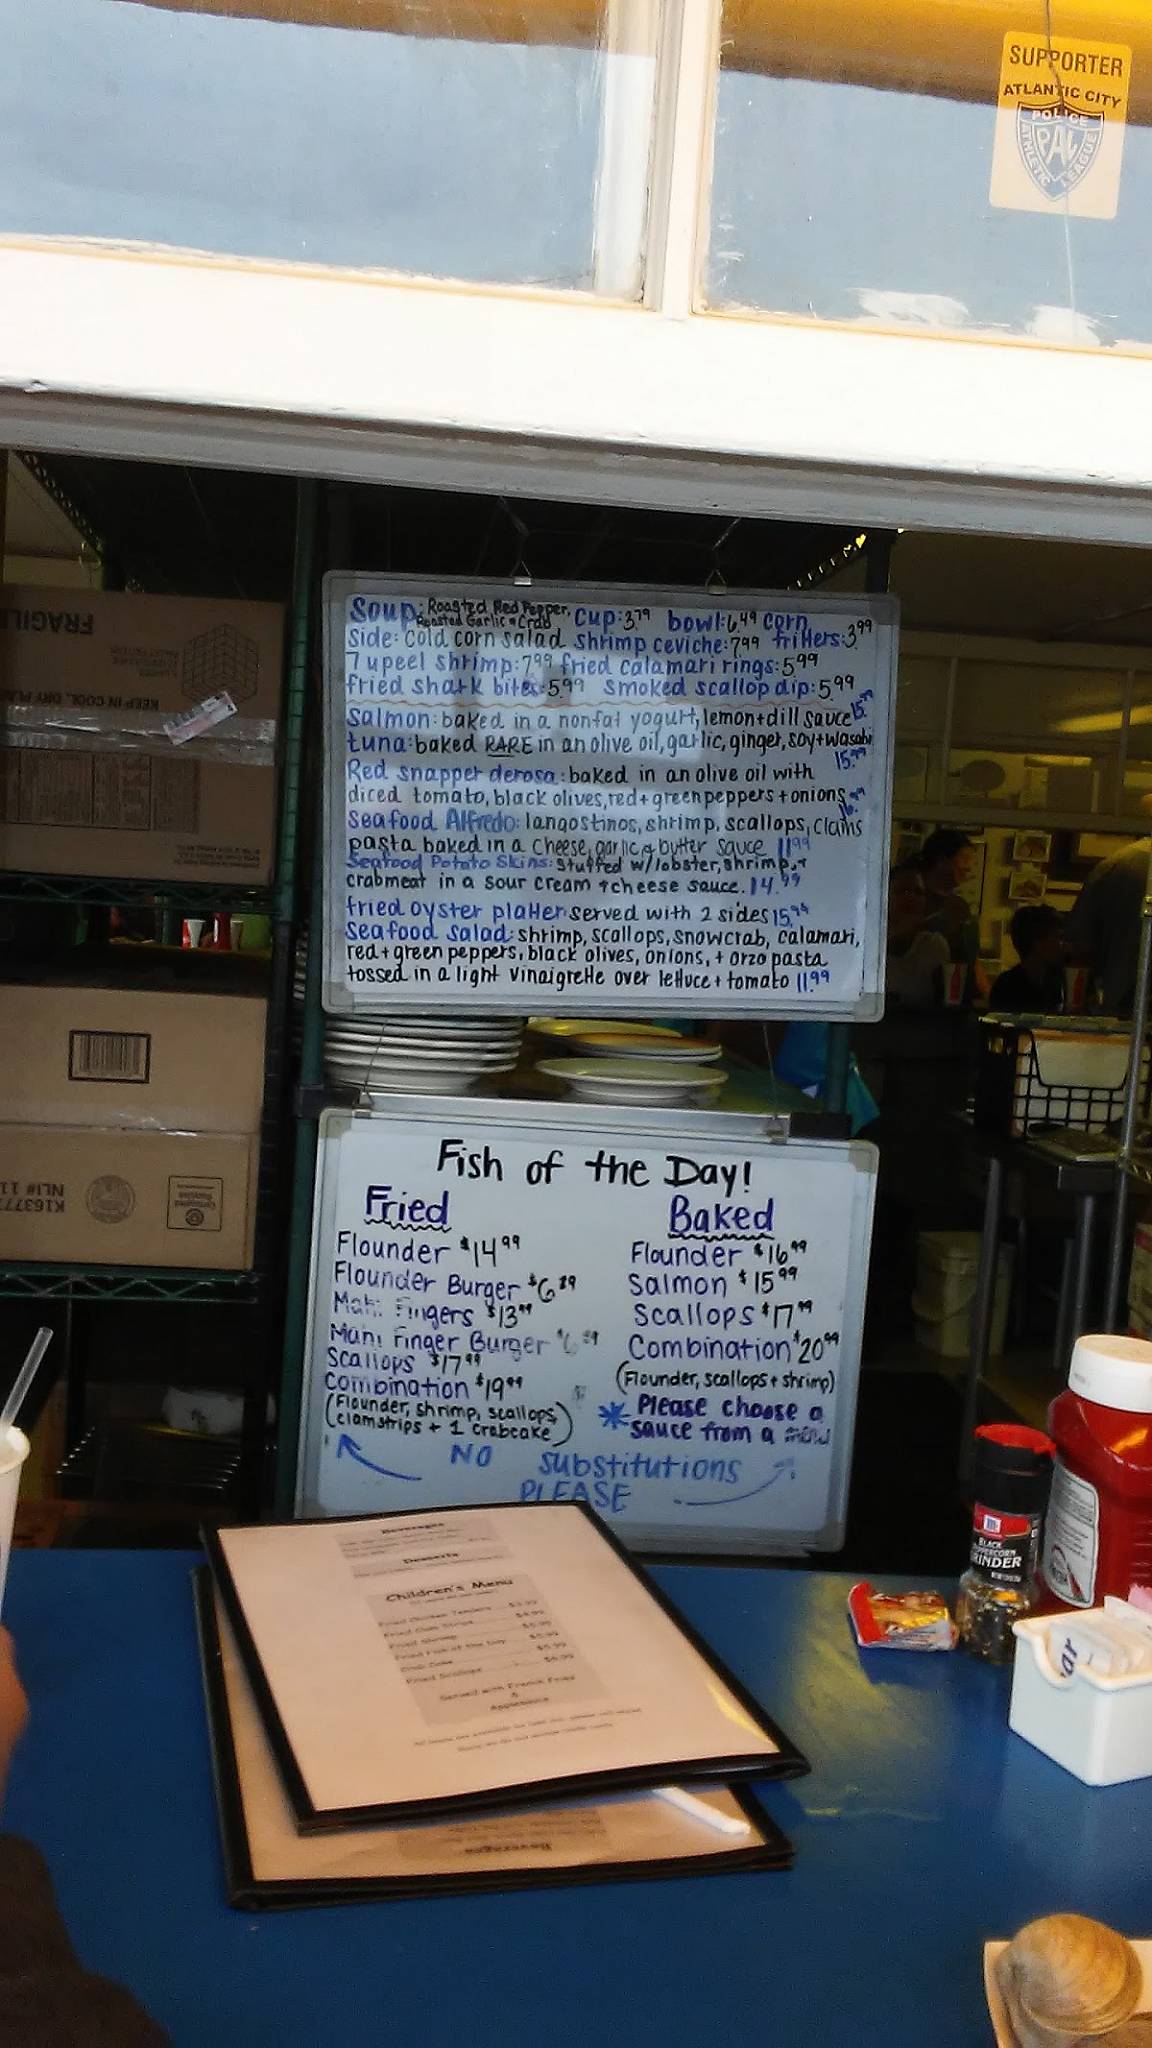 SUPPORTER
ATLANTIC CITY
POLICE
PAL
ATHLETIC LEAGUE
FRAGILE
KEEP IN COOL, DRY PLA
Soup: Roasted Red Pepper, Roasted Garlic + Crab Cup: 3.79 bowl: 6.49 corn
Side: Cold corn salad shrimp ceviche: 7.99 fritters: 3.99
7 upeel shrimp: 7.99 fried calamari rings: 5.99
fried shark bites: 5.99 smoked scallop dip: 5.99
Salmon: baked in a nonfat yogurt, lemon + dill sauce 15.99
tuna: baked RARE in an olive oil, garlic, ginger, soy + wasabi
15.99
Red snapper derosa: baked in an olive oil with
diced tomato, black olives, red + green peppers + onions
Seafood Alfredo: langostinos, shrimp, scallops, clams
pasta baked in a cheese, garlic & butter sauce 11.99
Seafood Potato Skins: stuffed w/ lobster, shrimp, +
crabmeat in a sour cream + cheese sauce. 14.99
fried oyster platter served with 2 sides 15.99
Seafood Salad: shrimp, scallops, snowcrab, calamari,
red + green peppers, black olives, onions, + orzo pasta
tossed in a light vinaigrette over lettuce + tomato 11.99
Fish of the Day!
Fried
Flounder $14.99
Flounder Burger $6.89
Mahi Fingers $13.99
Mahi Finger Burger
Scallops $17.99
Combination $19.99
(Flounder, shrimp, scallops,
clamstrips + 1 crabcake)
Baked
Flounder $16.99
Salmon $15.99
Scallops $17.99
Combination $20.99
(Flounder, scallops + shrimp)
* Please choose a
sauce from a menu
NO substitutions
PLEASE
K16377
NLI# 11
Beverages
Desserts
Children's Menu
Fried Chicken Tenders
Fried Clam Strips
Fried Shrimp
Fried Fish of the Day
Crab Cake
Fried Scallops
Served with French Fries
&
Applesauce
Beverages
BLACK
PEPPERCORN
GRINDER